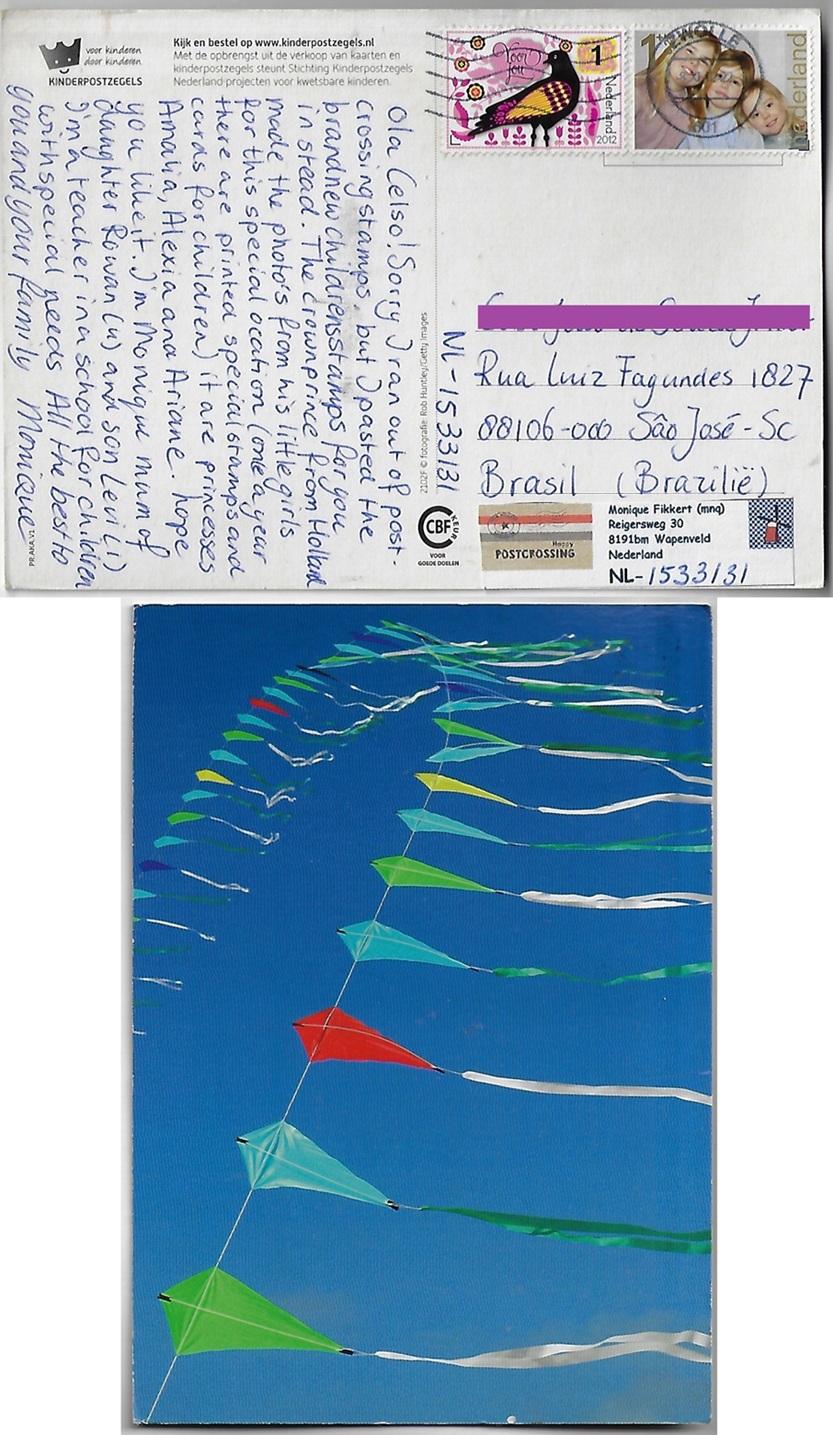 voor kinderen
door kinderen
KINDERPOSTZEGELS
Kijk en bestel op www.kinderpostzegels.nl
Met de opbrengst uit de verkoop van kaarten en
kinderpostzegels steunt Stichting Kinderpostzegels
Nederland projecten voor kwetsbare kinderen.
Ola Celso! Sorry I ran out of post-
crossing stamps, but I pasted the
brandnew childrensstamps for you
in stead. The crownprince from Holland
made the photo's from his little girls
for this special ocation (one a year
there are printed special stamps and
cards for children) it are princesses
Amalia, Alexia and Ariane. hope
you like it. I'm Monique mum of
daughter Rowan (4) and son Levi (1)
I'm a teacher in a school for children
with special needs. All the best to
you and your family Monique
PR.AKA.V1
2102F © fotografie: Rob Huntley/Getty Images
CBF KEUR
VOOR
GOEDE DOELEN
Voor jou
1
Nederland
2012
1
Nederland
ZWOLLE
NL-1533131
Rua Luiz Fagundes 1827
88106-000 São José-Sc
Brasil (Brazilië)
Happy
POSTCROSSING
Monique Fikkert (mnq)
Reigersweg 30
8191bm Wapenveld
Nederland
NL-1533131